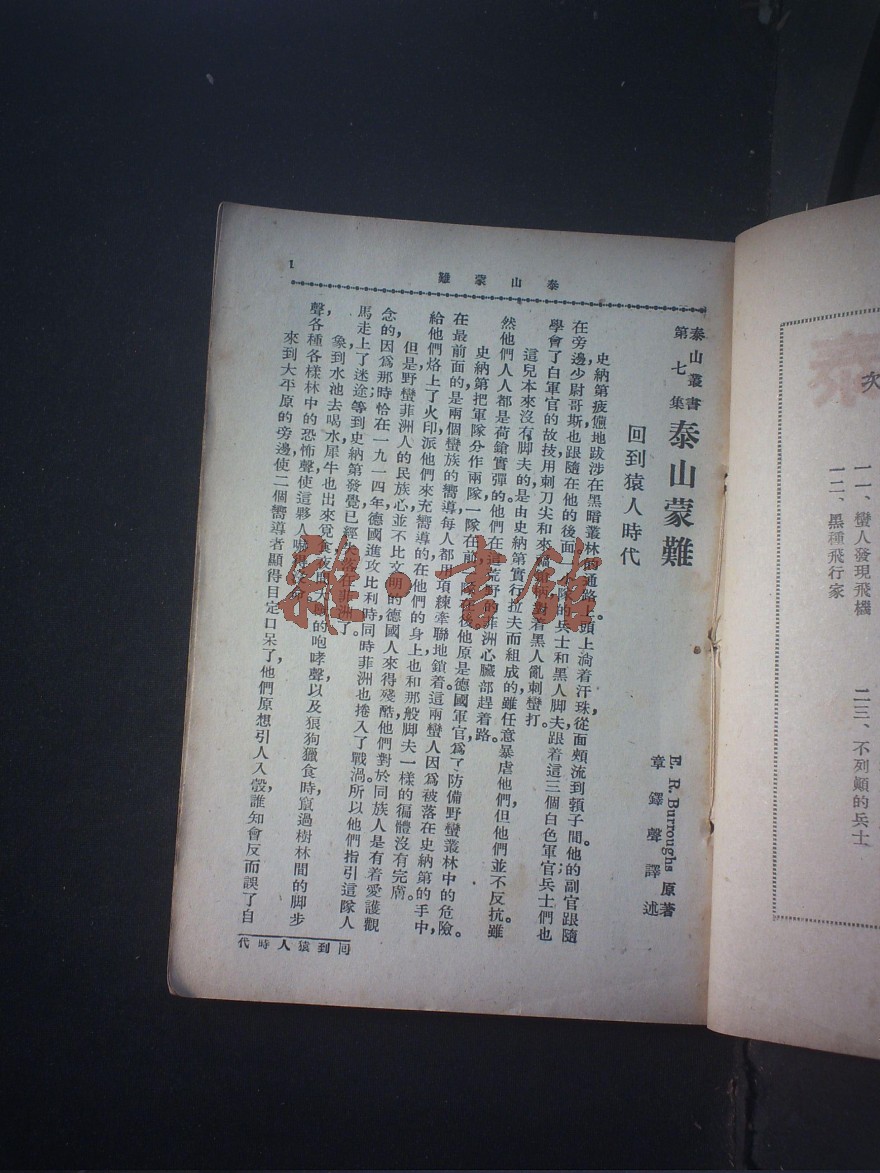 泰山蒙難
1
泰山叢書
第七集
泰山蒙難
E. R. Burroughs 原著
章鐸聲譯述
回到猿人時代
史納第疲憊地跋涉在黑暗叢林的通路上。頭上淌着汗珠,從面頰流到頸子間。他的副官跟隨
在旁邊,少尉哥斯也跟隨在他的後面,一小隊的兵士和黑人脚夫,跟着這三個白色軍官;兵士們也
學會了白軍官的故技,用刺刀尖和來福鎗柄對着黑人亂刺蠻打。
這兒本來沒有脚夫的,是由史納第實行拉夫而組成的,雖任意暴虐他們,但他們並不反抗。雖
然他們人人都是荷鎗實彈的,他們在這荒野的菲洲心臟部趕着路。
史納第把軍隊分作兩隊,一隊在前,一隊在後。他原是德國軍官,爲了防備野蠻叢林中的危險。
在最前面的是兩個蠻族的嚮導,每人都用項練牽聯地鎖着,這兩蠻人因爲被落在史納第的手中,
給他們烙上了火印,派他們來充嚮導的,在他們的身上也和那般脚夫一樣的徧體沒有完膚。
但是,野蠻菲洲人的民族心,並不比文明的德國人來得殘酷,他們對於同族人是有着愛護觀
念的,因爲那時恰在一九一四年,德國進攻比利時,同時菲洲也捲入了戰渦。所以他們指引這隊人
馬走上了迷途;等到史納第發覺,已經
在菲洲了。
象到水池去喝水,犀牛也出來覓食,夜間
的咆哮聲,以及狼狗獵食時竄過樹林間的脚步
聲,各種各樣林中的恐怖聲,使這夥人嚇得
來到大平原的旁邊,使二個嚮導者顯得目定口呆了。他們原想引人入彀,誰知會反而誤了自
回到猿人時代
次
一一、蠻人發現飛機
一二、黑種飛行家
二三、不列顛的兵士
泰
雜·書館